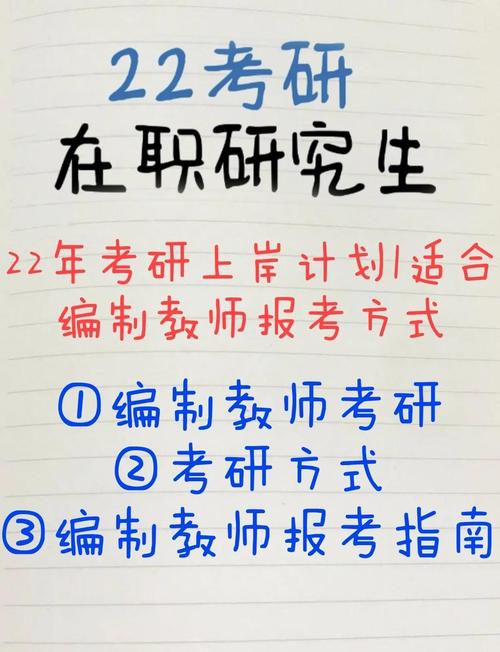 22考研
在职研究生
22年考研上岸计划|适合
编制教师报考方式
①编制教师考研
②考研方式
③编制教师报考指南